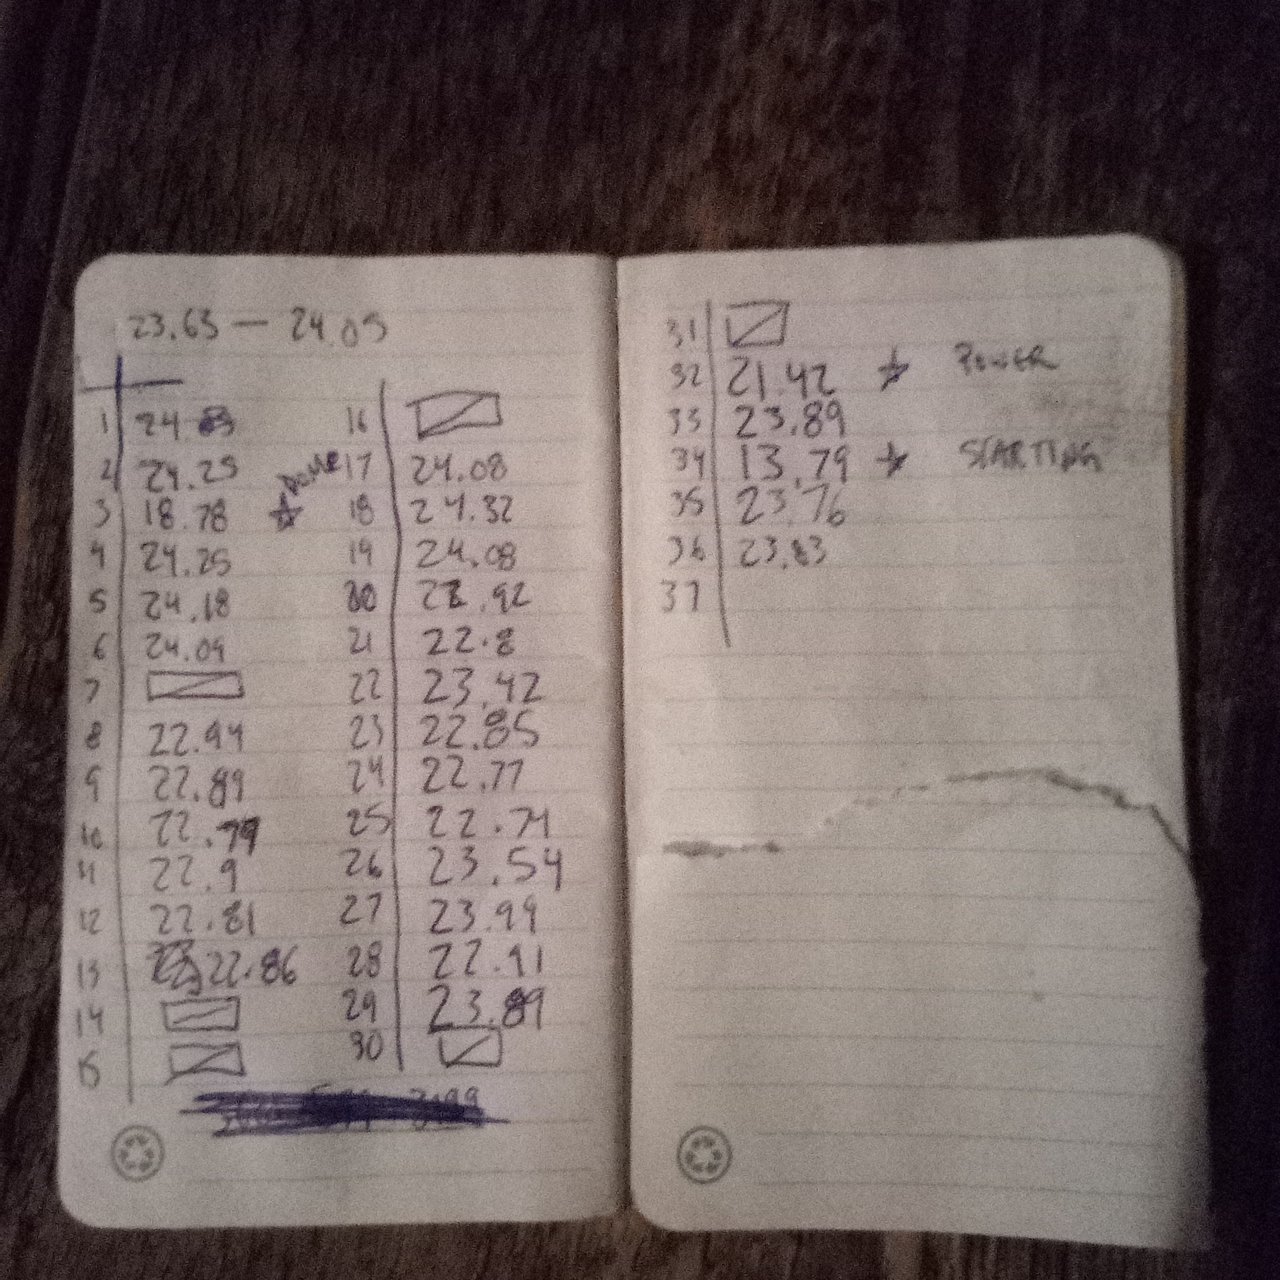 23.63 — 24.05
1 24.83
2 24.25
3 18.78 ☆ DOME
4 24.25
5 24.18
6 24.09
7
8 22.94
9 22.89
10 22.79
11 22.9
12 22.81
13 22.86
14
15
16
17 24.08
18 24.32
19 24.08
20 22.92
21 22.8
22 23.42
23 22.85
24 22.77
25 22.74
26 23.54
27 23.99
28 22.91
29 23.89
30
31
32 21.42 ☆ POWER
33 23.89
34 13.79 ☆ STARTING
35 23.76
36 23.83
37